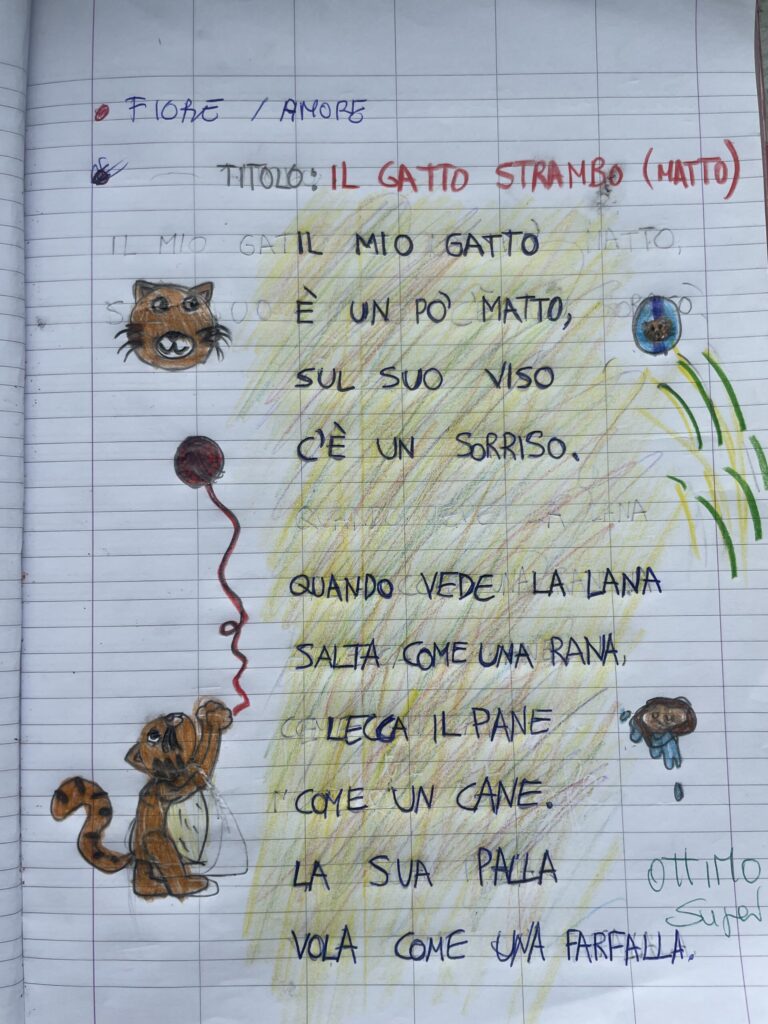 FIORE / AMORE
TITOLO: IL GATTO STRAMBO (MATTO)
IL MIO GATTO
È UN PO' MATTO,
SUL SUO VISO
C'È UN SORRISO.
QUANDO VEDE LA LANA
SALTA COME UNA RANA,
LECCA IL PANE
COME UN CANE.
LA SUA PALLA
VOLA COME UNA FARFALLA.
OTTIMO
Super